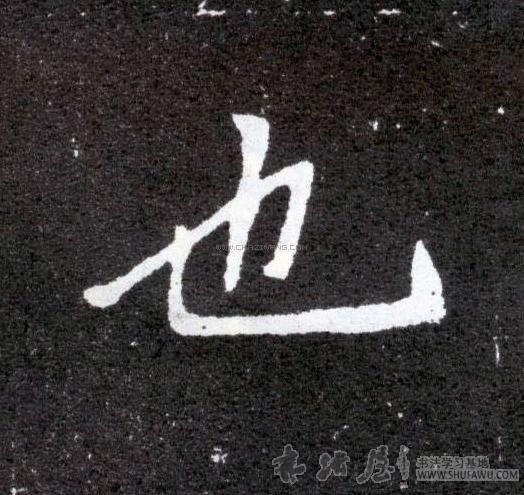 也
WWW.CHAZIWANG.COM
书法学习基地
WWW.SHUFAWU.COM